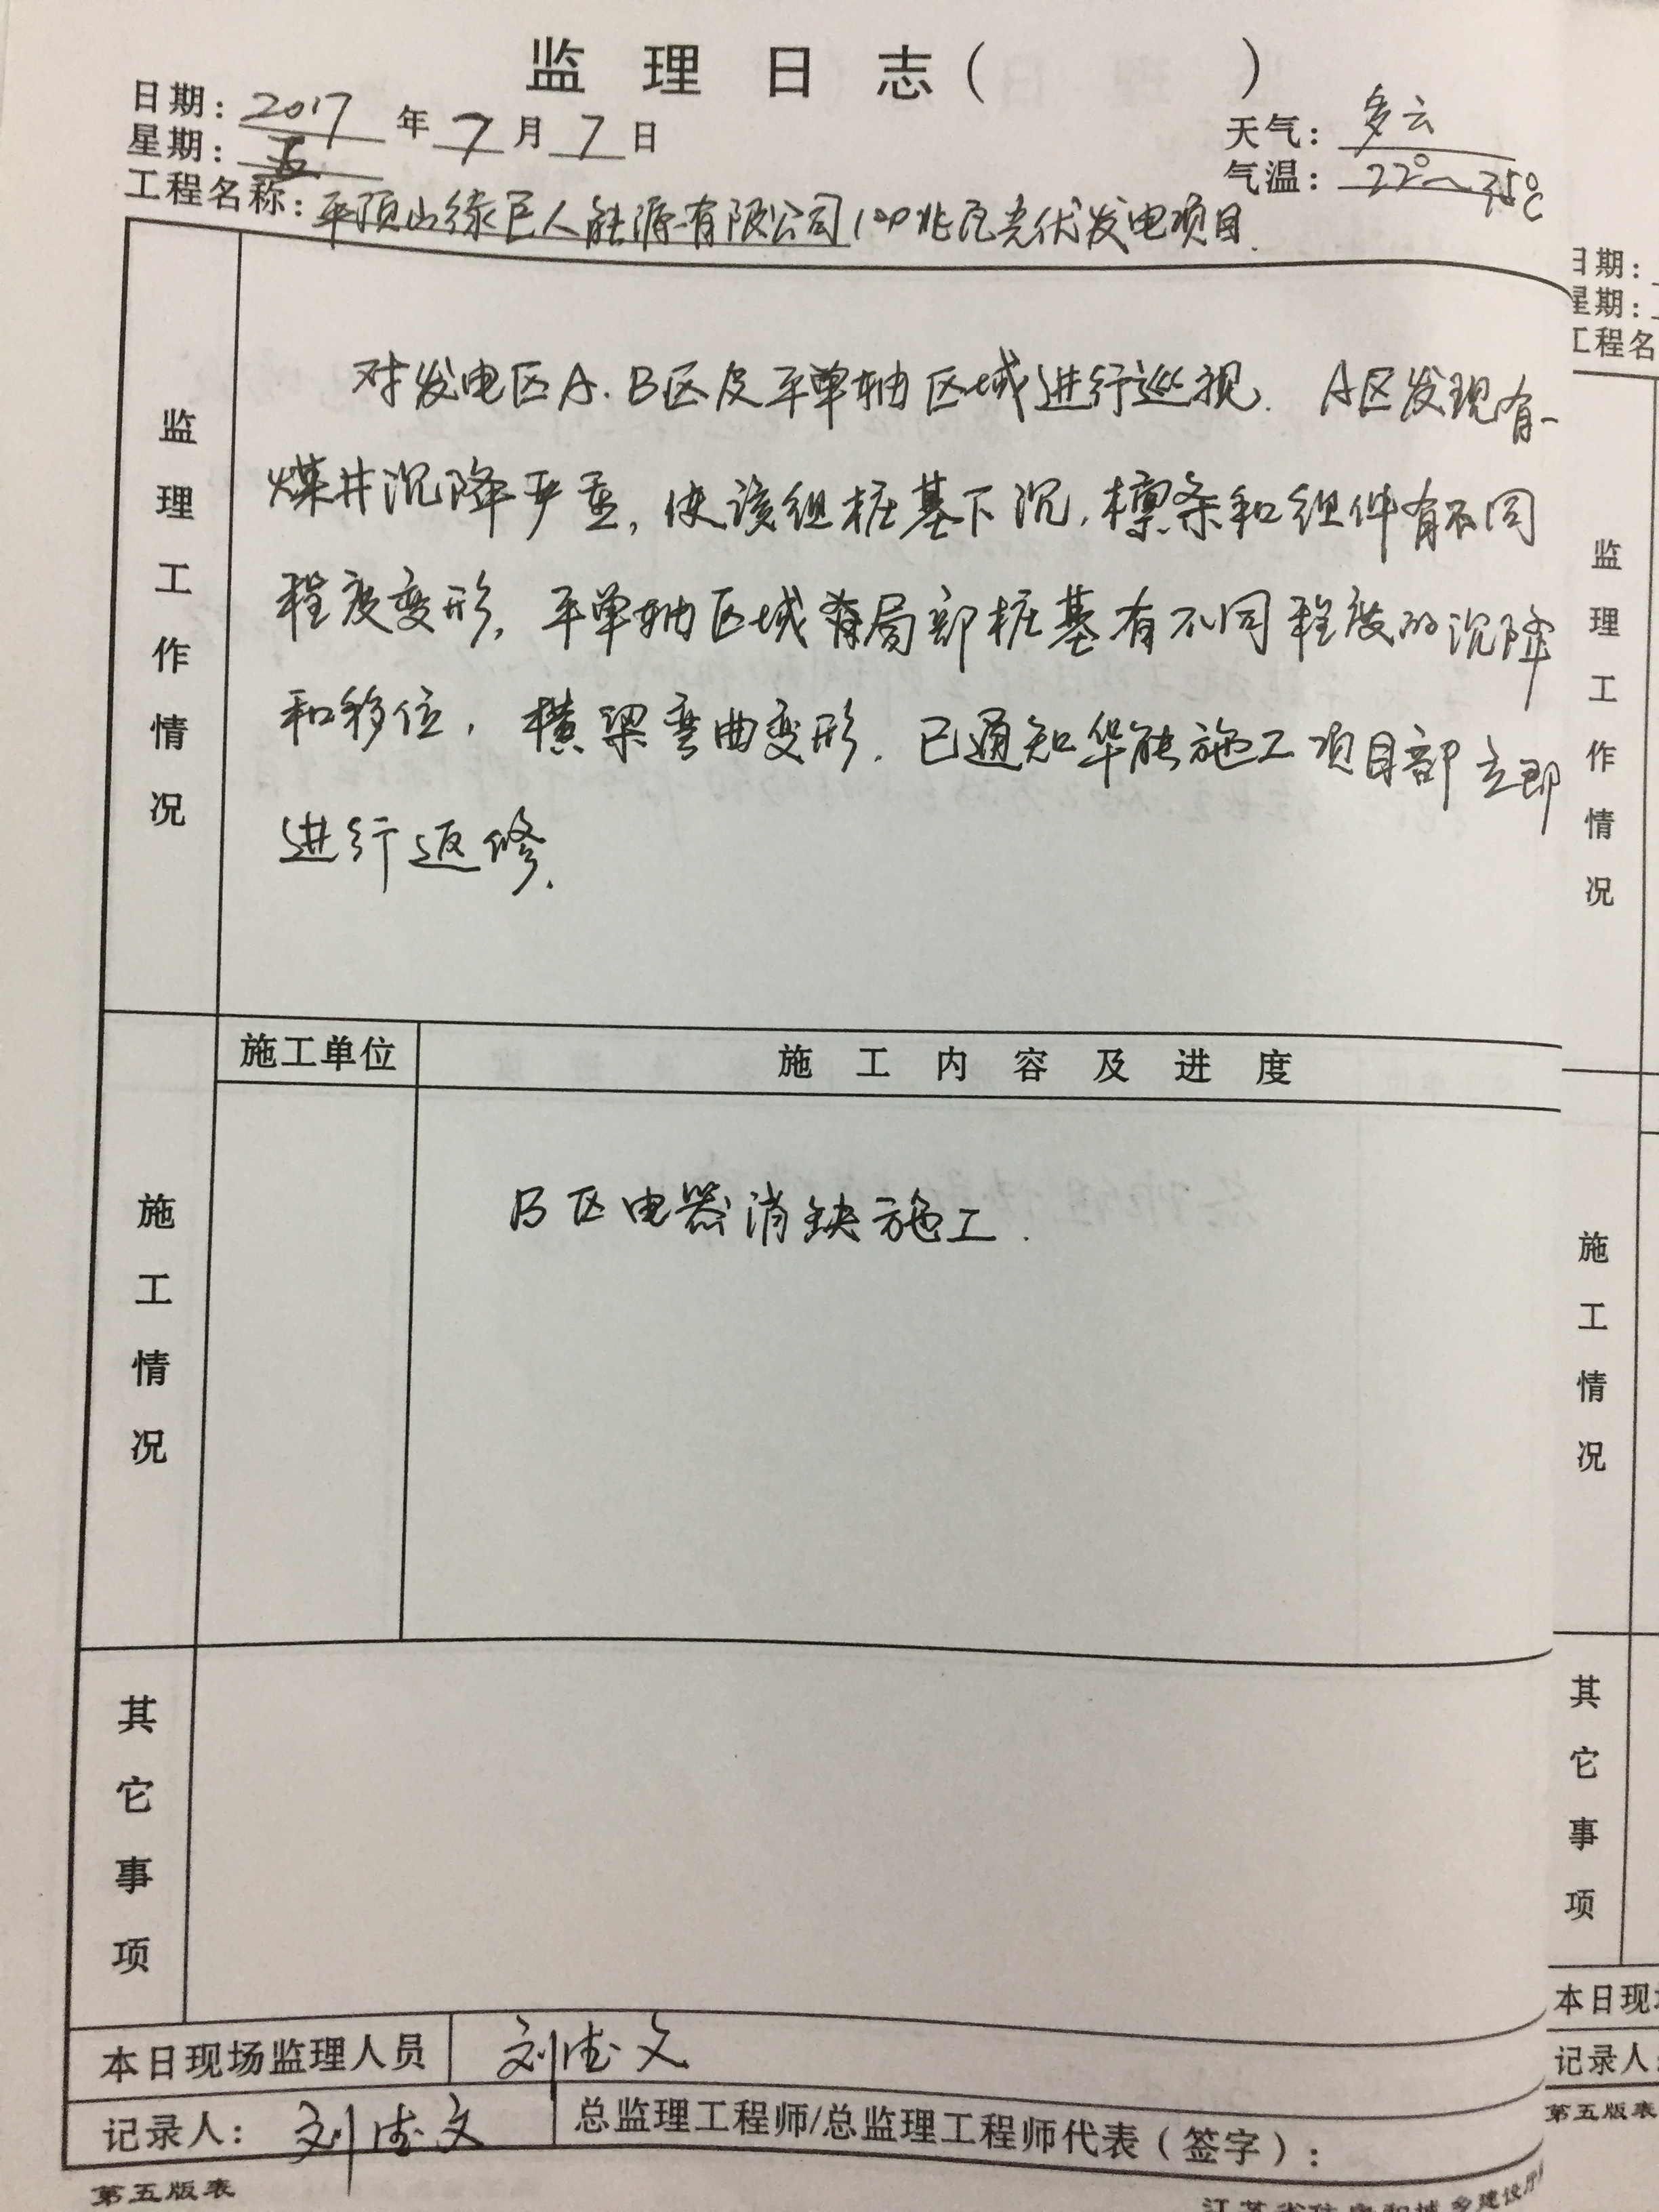 监理日志（ ）
日期：2017年7月7日
星期：五
天气：多云
气温：22°~35℃
工程名称：平顶山绿巨人能源有限公司100兆瓦光伏发电项目.
监理工作情况
对发电区A.B区及平单轴区域进行巡视. A区发现有一
煤井沉降严重,使该组桩基下沉,檩条和组件有不同
程度变形,平单轴区域有局部桩基有不同程度的沉降
和移位,横梁弯曲变形.已通知华能施工项目部立即
进行返修.
施工情况
施工单位
施工内容及进度
B区电器消缺施工.
其它事项
本日现场监理人员 刘德文
记录人：刘德文
总监理工程师/总监理工程师代表（签字）：
第五版表
日期：
星期：
工程名
监理工作情况
施工情况
其它事项
本日现场
记录人：
第五版表